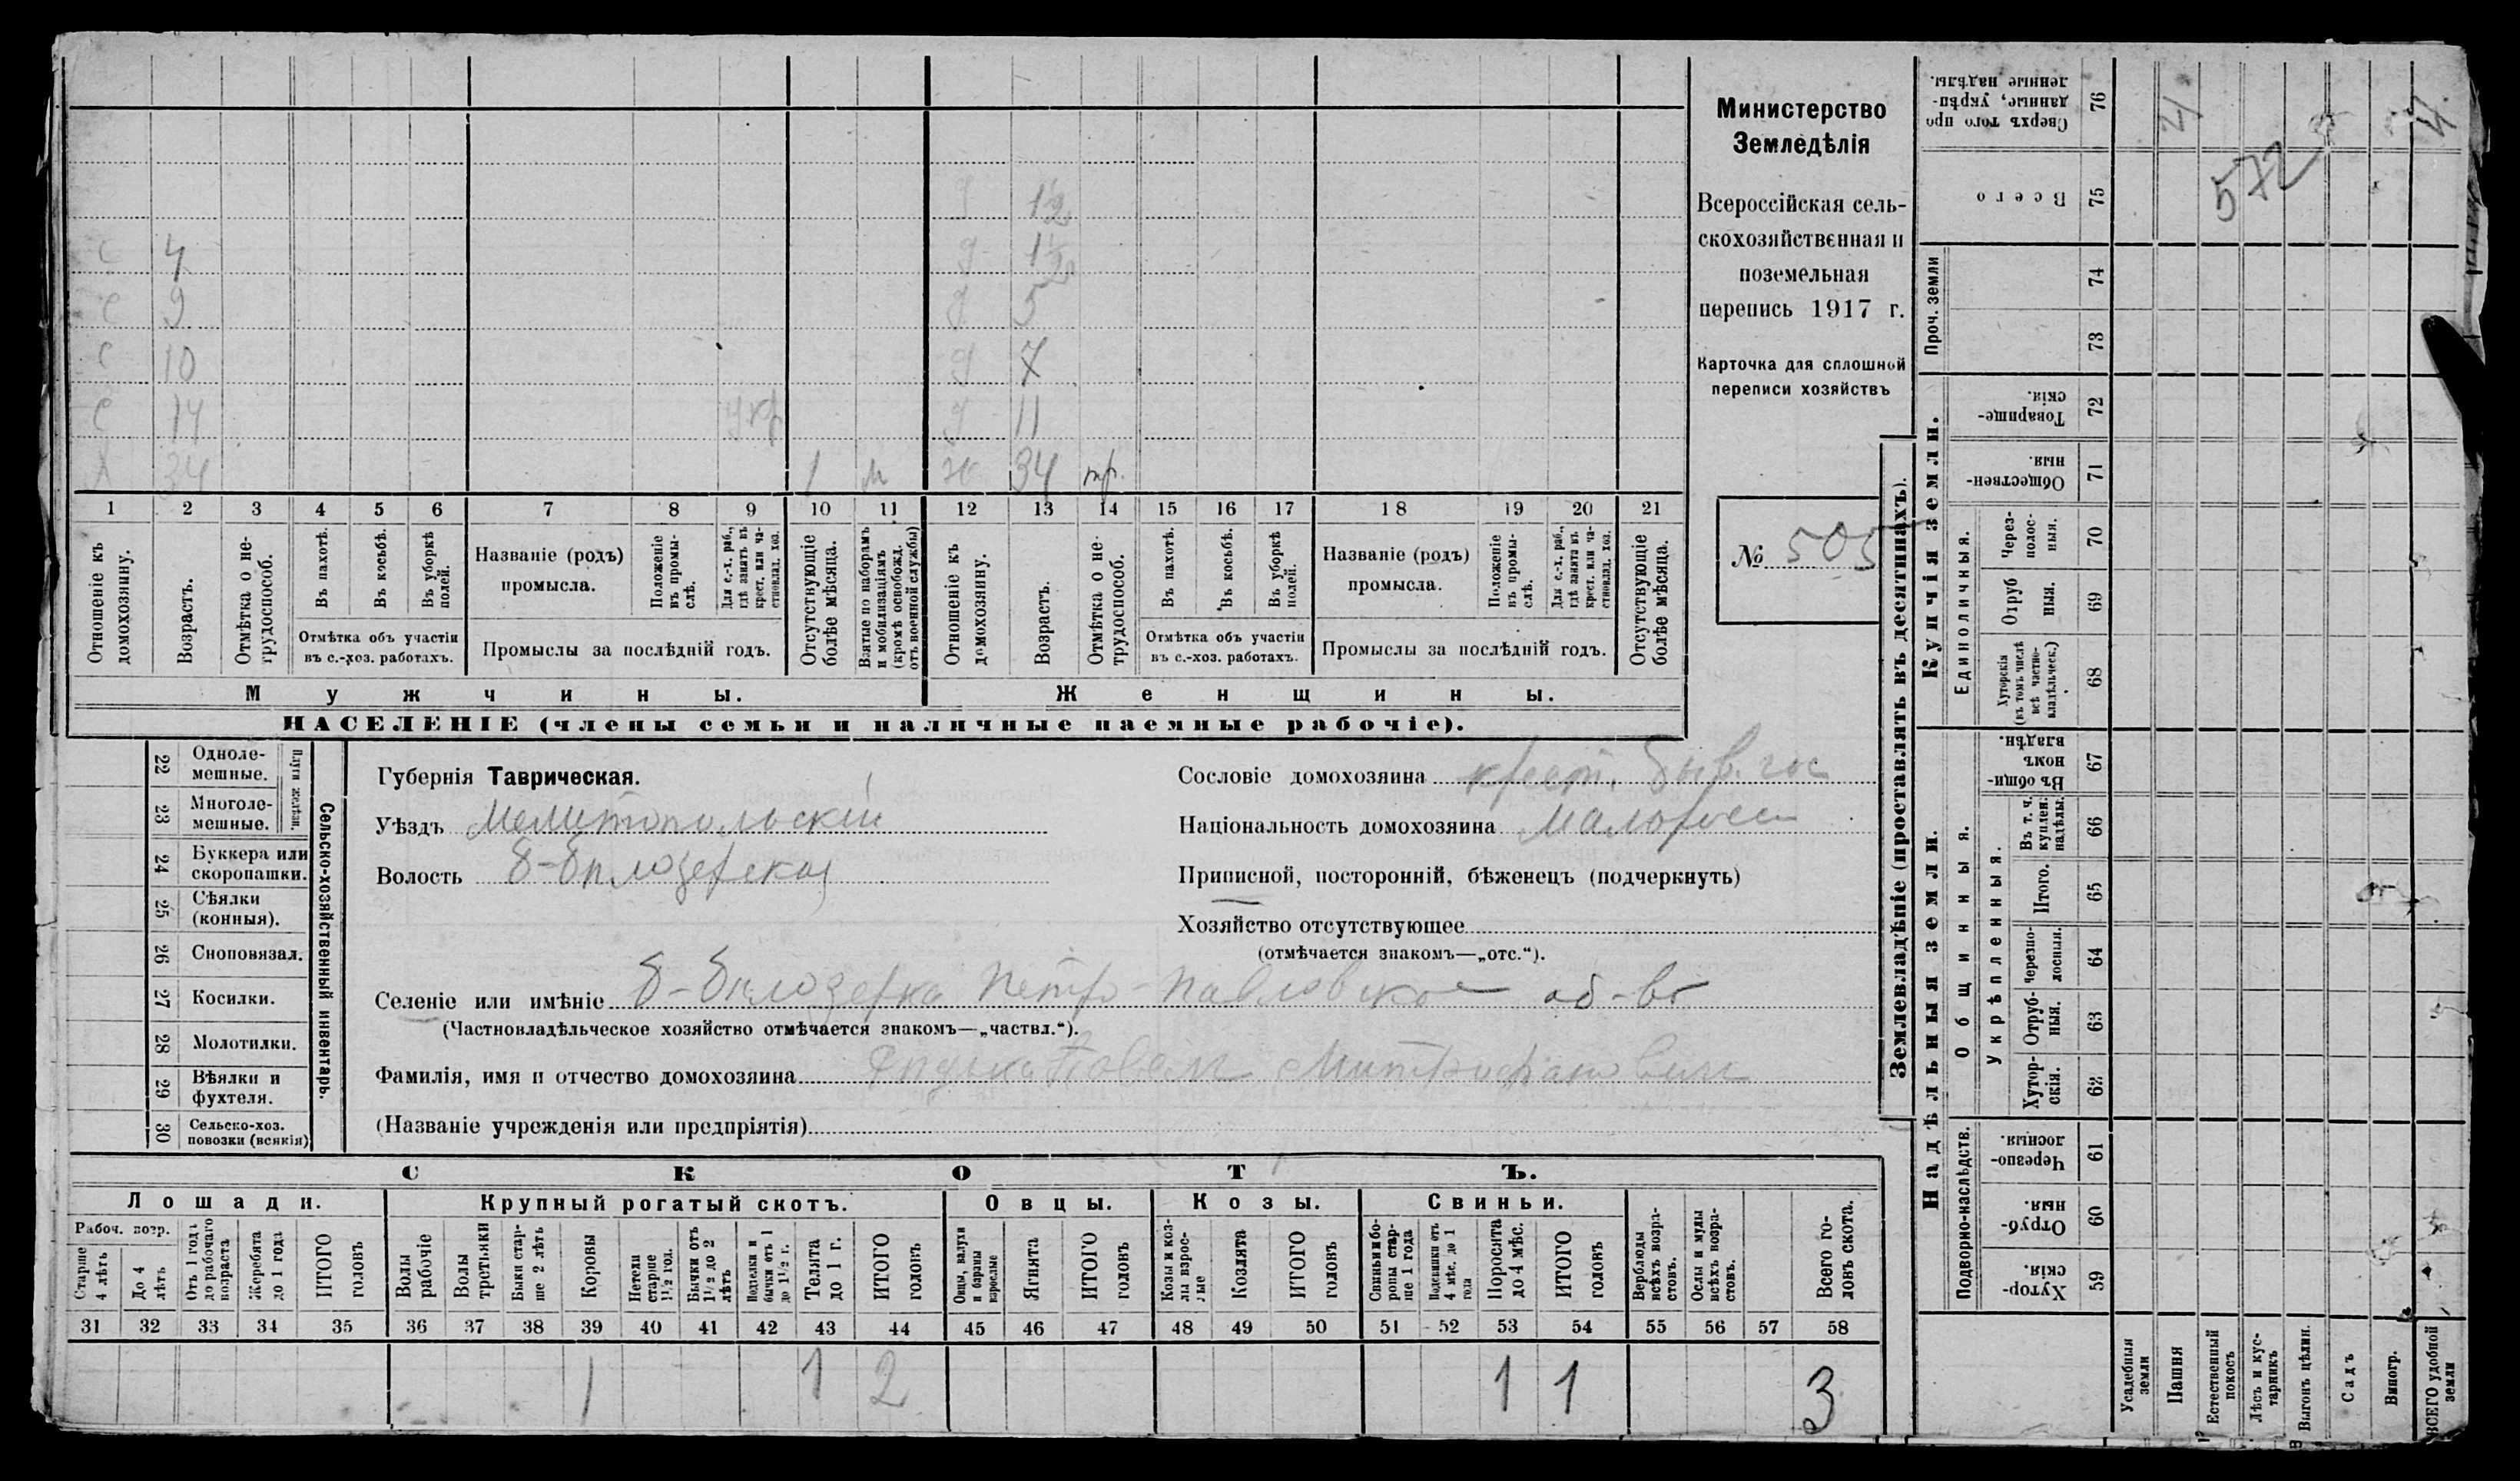 4
9
10
14
Х 34 1 м
д 1½
д 1½
д 5
д 7
д 11
ж 34 нр.
1 2 3 4 5 6 7 8 9 10 11 12 13 14 15 16 17 18 19 20 21
Отношеніе къ домохозяину.
Возрастъ.
Отмѣтка о нетрудоспособ.
Въ пахотѣ.
Въ косьбѣ.
Въ уборкѣ полей.
Названіе (родъ) промысла.
Положеніе въ промыслѣ.
Для с.-х. раб., гдѣ занятъ въ крест. или частновлад. хоз.
Отсутствующіе болѣе мѣсяца.
Взятые по наборамъ и мобилизаціямъ (кромѣ освобожд. отъ военной службы)
Отношеніе къ домохозяину.
Возрастъ.
Отмѣтка о нетрудоспособ.
Въ пахотѣ.
Въ косьбѣ.
Въ уборкѣ полей.
Названіе (родъ) промысла.
Положеніе въ промыслѣ.
Для с.-х. раб., гдѣ занята въ крест. или частновлад. хоз.
Отсутствующіе болѣе мѣсяца.
Отмѣтка объ участіи въ с.-хоз. работахъ.
Промыслы за послѣдній годъ.
Отмѣтка объ участіи въ с.-хоз. работахъ.
Промыслы за послѣдній годъ.
Мужчины.
Женщины.
НАСЕЛЕНІЕ (члены семьи и наличные наемные рабочіе).
Министерство
Земледѣлія
Всероссійская сель-
скохозяйственная и
поземельная
перепись 1917 г.
Карточка для сплошной
переписи хозяйствъ
№ 505
22 Однолемешные.
23 Многолемешные.
Плуги желѣзн.
24 Буккера или скоропашки.
25 Сѣялки (конныя).
26 Сноповязал.
27 Косилки.
28 Молотилки.
29 Вѣялки и фухтеля.
30 Сельско-хоз. повозки (всякія)
Сельско-хозяйственный инвентарь.
Губернія Таврическая.
Уѣздъ Мелитопольскій
Волость Б-Бѣлозерская
Селеніе или имѣніе Б-Бѣлозерка Петро-Павловское об-во
(Частновладѣльческое хозяйство отмѣчается знакомъ—„частвл.“).
Фамилія, имя и отчество домохозяина Павелъ Митрофановичъ
(Названіе учрежденія или предпріятія)
Сословіе домохозяина крест. быв. гос
Національность домохозяина малоросс
Приписной, посторонній, бѣженецъ (подчеркнуть)
Хозяйство отсутствующее
(отмѣчается знакомъ—„отс.“).
СКОТЪ.
Лошади.
Крупный рогатый скотъ.
Овцы.
Козы.
Свиньи.
Рабоч. возр.
Старше 4 лѣтъ
До 4 лѣтъ
Отъ 1 года до рабочаго возраста
Жеребята до 1 года
ИТОГО головъ
Волы рабочіе
Волы третьяки
Быки старше 2 лѣтъ
Коровы
Нетели старше 1½ год.
Бычки отъ 1½ до 2 лѣтъ
Неделки и бычки отъ 1 до 1½ г.
Телята до 1 г.
ИТОГО головъ
Овцы, валухи и бараны взрослые
Ягнята
ИТОГО головъ
Козы и козлы взрослые
Козлята
ИТОГО головъ
Свиньи и боровы старше 1 года
Подсвинки отъ 4 мѣс. до 1 года
Поросята до 4 мѣс.
ИТОГО головъ
Верблюды всѣхъ возрастовъ.
Ослы и мулы всѣхъ возрастовъ.
Всего головъ скота.
31 32 33 34 35 36 37 38 39 40 41 42 43 44 45 46 47 48 49 50 51 52 53 54 55 56 57 58
1 1 2 1 1 3
Землевладѣніе (проставлять въ десятинахъ).
Купчія земли.
Надѣльныя земли.
Сверхъ того проданные, укрѣпленные надѣлы. 76
Всего 75
Проч. земли
74
73
Товарищескія. 72
Общественныя. 71
Единоличныя.
Черезполосныя. 70
Отрубныя. 69
Хуторскія (въ томъ числѣ всѣ частновладѣльческ.) 68
Общинныя.
Въ общинномъ владѣн. 67
Укрѣпленныя.
Въ т. ч. куплен. надѣлы. 66
Итого. 65
Черезполосныя. 64
Отрубныя. 63
Хуторскія. 62
Подворно-наслѣдств.
Черезполосныя. 61
Отрубныя. 60
Хуторскія. 59
Усадебныя земли
Пашня
Естественный покосъ
Лѣсъ и кустарникъ
Выгонъ цѣлин.
Садъ
Виногр.
ВСЕГО удобной земли
572